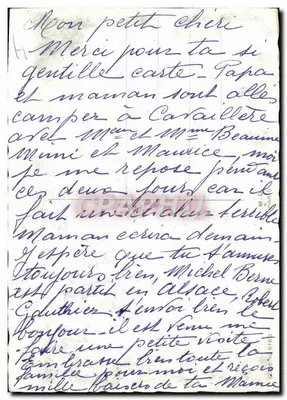 Mon petit chéri
Merci pour ta si
gentille carte - Papa
et maman sont allés
camper à Cavaillère
avec Mr et Mme Beaume
Mimi et Maurice, moi
je me repose pendant
ces deux jours car il
fait une chaleur terrible
Maman écrira demain.
J'espère que tu t'amuses
toujours bien, Michel Berne
est partit en Alsace, Robert
Gauthier t'envoi bien le
bonjour - il est venu me
faire une petite visite
Embrasse bien toute la
famille pour moi et reçois
mille baisers de ta Mamie